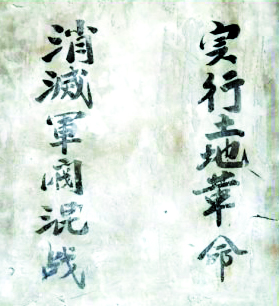 実行土地革命
消滅軍阀混战